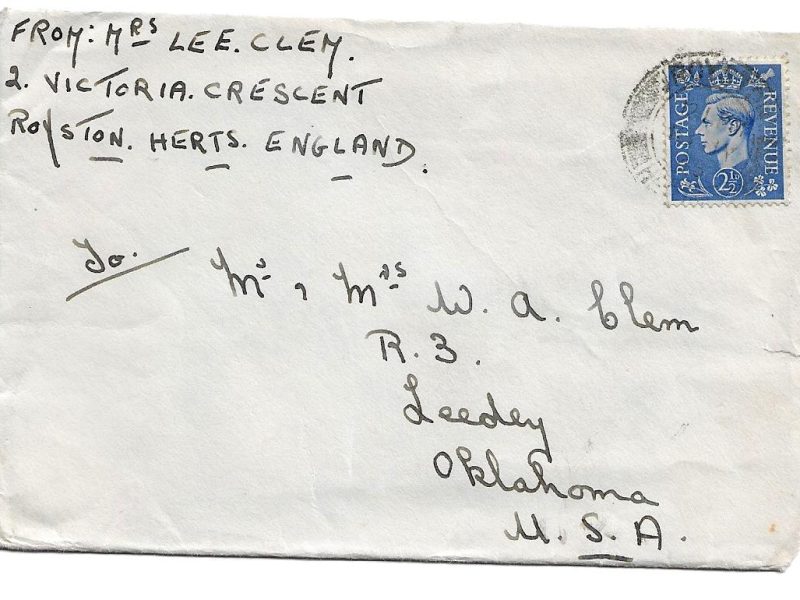 FROM: MRS LEE. CLEM.
2. VICTORIA. CRESCENT
ROYSTON. HERTS. ENGLAND.
POSTAGE REVENUE
2½D
To.
Mr , Mrs W. A. Clem
R. 3.
Leedey
Oklahoma
U. S. A.